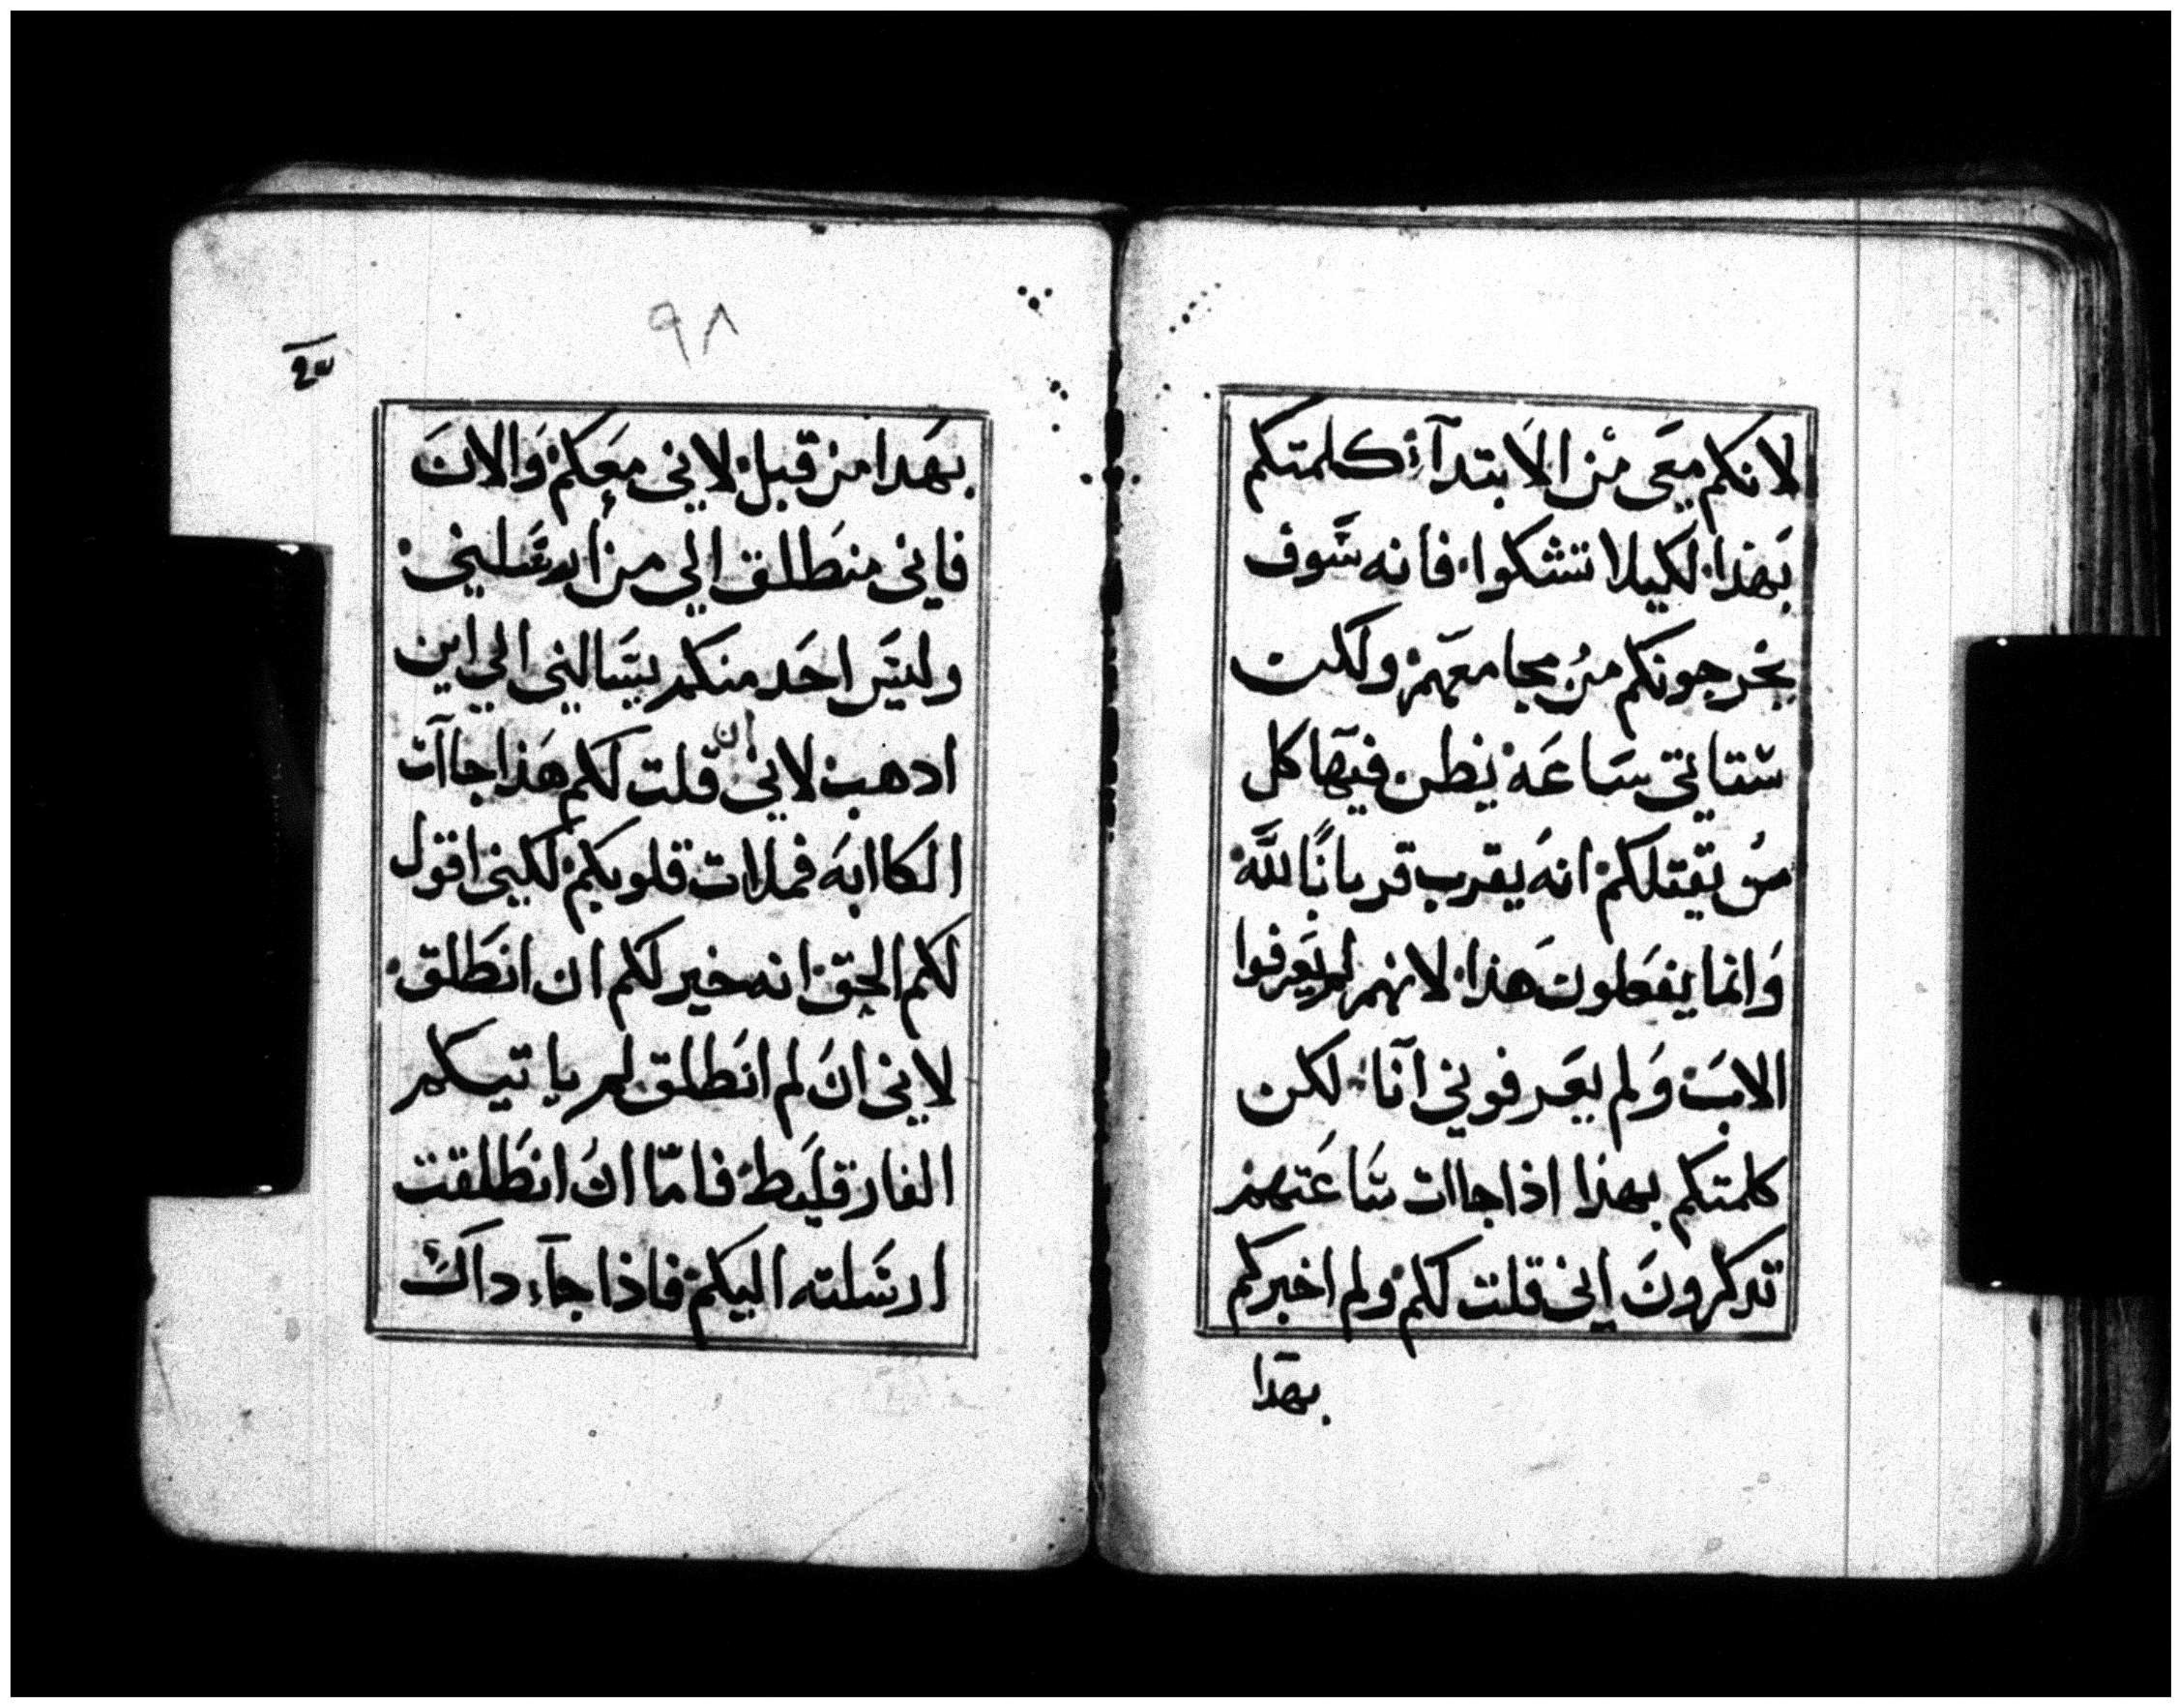 لانكم معى من الابتدآء كلمتكم
بهذا لكيلا تشكوا فانه سوف
يخرجونكم من مجامعهم ولكن
ستاتى ساعة يظن فيها كل
من يقتلكم انه يقرب قربانًا لله
وانما يفعلون هذا لانهم لم يعرفوا
الاب ولم يعرفونى آنا لكن
كلمتكم بهذا اذا جاات ساعتهم
تدكرون انى قلت لكم ولم اخبركم
بهدا
٩٨
بهدا من قبل لانى معكم والان
فانى منطلق الي من ارسلنى
وليس احد منكم يسالنى الي اين
ادهب لانى ان قلت لكم هذا جاآت
الكاابه فملات قلوبكم لكنى اقول
لكم الحق انه خير لكم ان انطلق
لانى ان لم انطلق لم ياتيكم
الفارقليط فامّا ان انطلقت
ارسلته اليكم فاذا جآء داك